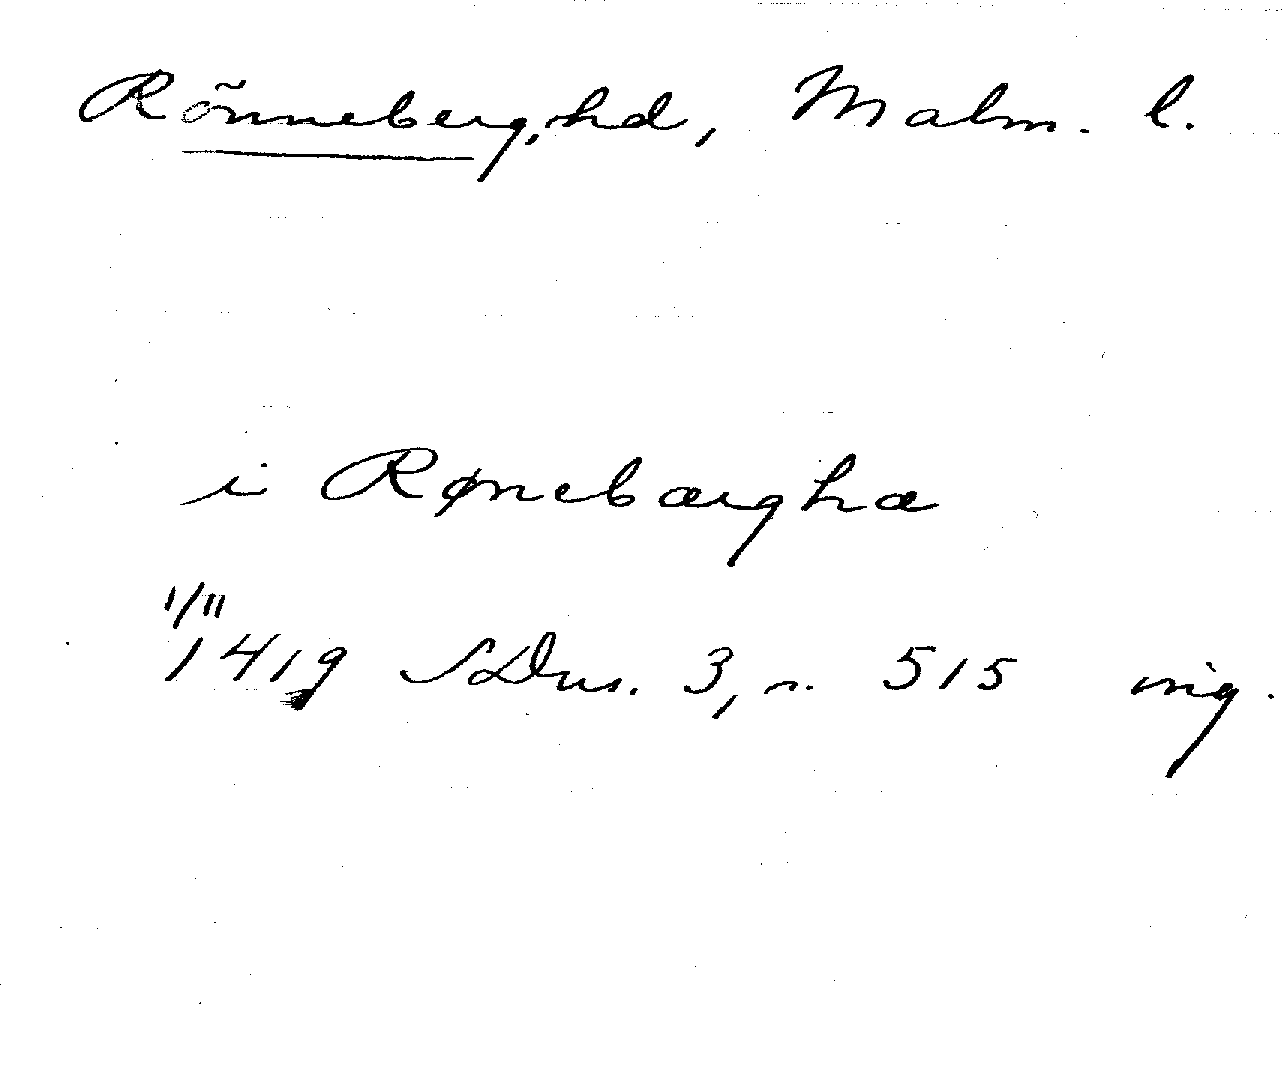 Rönneberg, hd, Malm. l.
i Rønebærghæ
1/11
1419 SDns. 3, n. 515 orig.